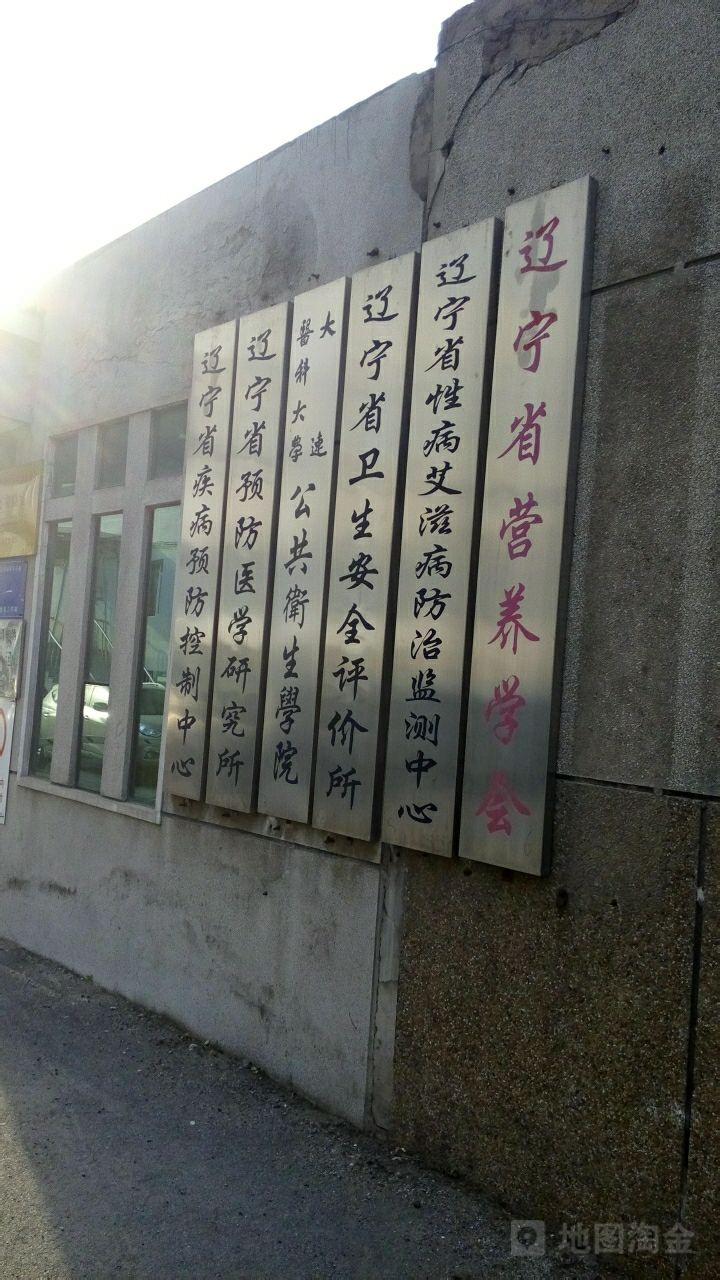 辽宁省疾病预防控制中心
辽宁省预防医学研究所
大連
醫科大學
公共衛生學院
辽宁省卫生安全评价所
辽宁省性病艾滋病防治监测中心
辽宁省营养学会
地图淘金